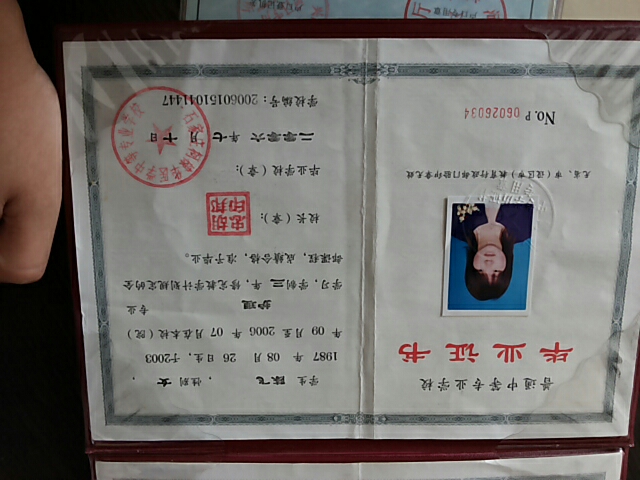 普通中等专业学校
毕业证书
无省、市(设区市)教育行政部门验印章无效
No. P 06026034
学生 陈飞 ，性别 女 ，
1987 年 08 月 26 日生，于2003
年 09 月至 2006 年 07 月在本校(院)
护理 专业
学习，学制 三 年，修完教学计划规定的全
部课程，成绩合格，准予毕业。
校长(章)：
胡邦忠印
毕业学校(章)：
二零零六 年 七 月 十 日
学校编号：20060151041447